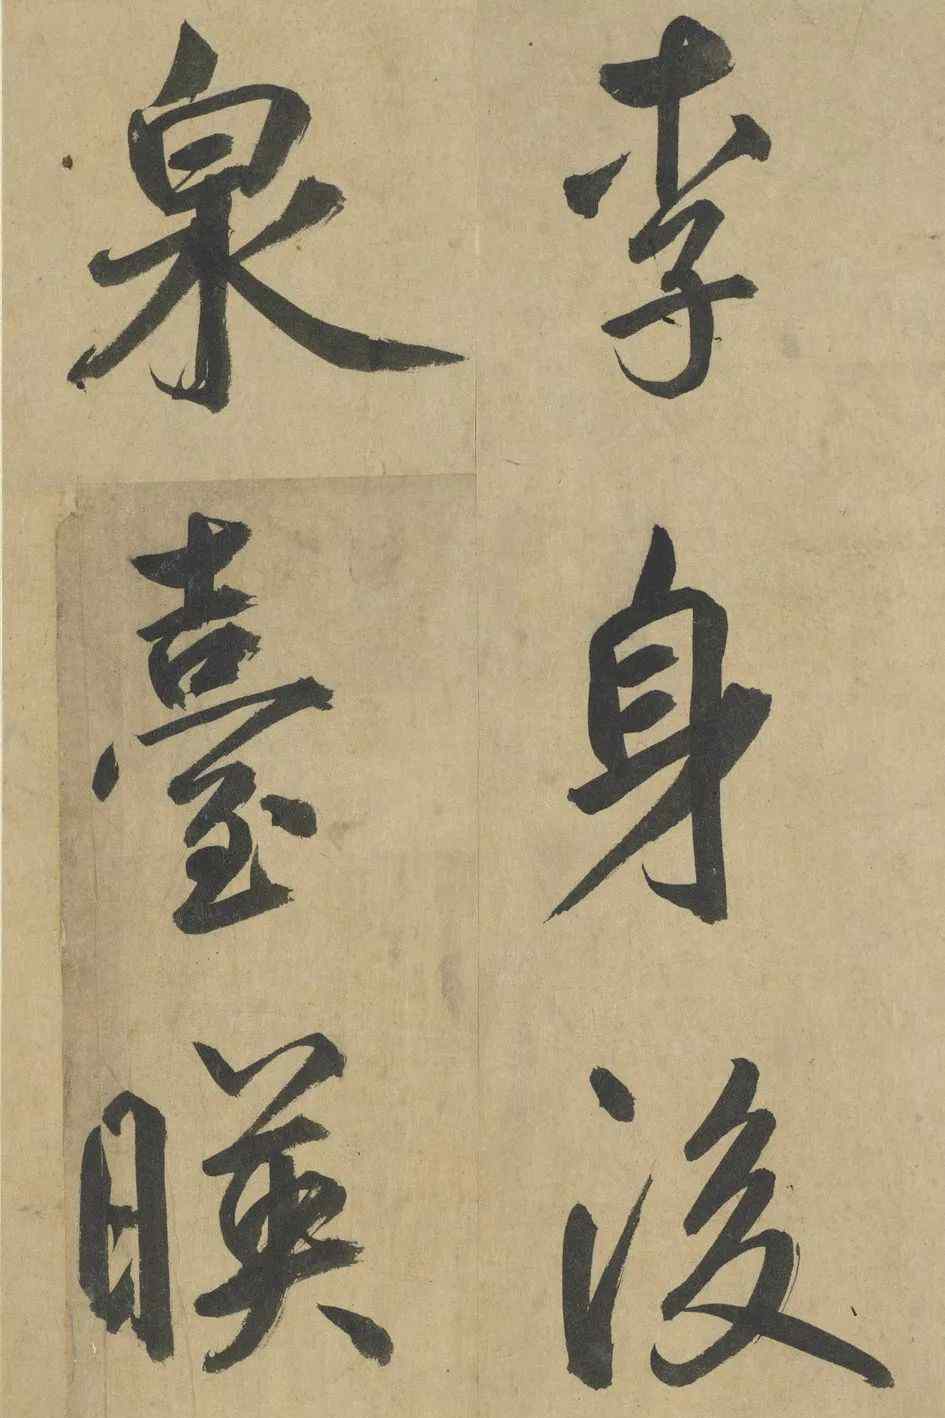 李身後
泉臺暎